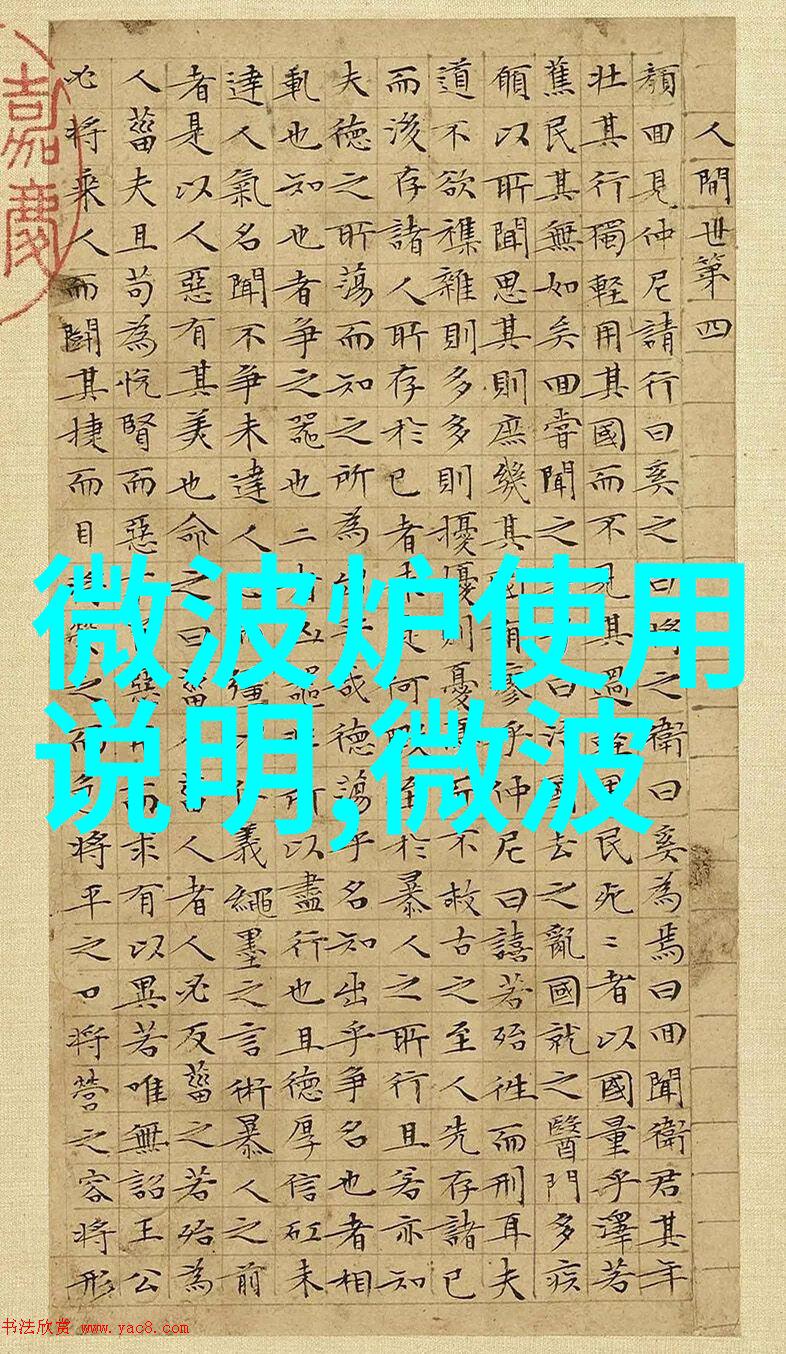 人間世第四
顏回見仲尼請行曰奚之曰將之衛曰奚為焉曰回聞衛君其年
壯其行獨輕用其國而不見其過輕用民死〻者以國量乎澤若
蕉民其無如矣回嘗聞之曰治國去之亂國就之醫門多疾
願以所聞思其則庶幾其國有瘳乎仲尼曰譆若殆往而刑耳夫
道不欲襍雜則多多則擾擾則憂憂不救古之至人先存諸已
而後存諸人所存於已者未定何暇至於暴人之所行且若亦知
夫德之所蕩而知之所為出乎哉德蕩乎名知出乎爭名也者相
軋也知也者爭之器也二者凶器非所以盡行也且德厚信矼未
達人氣名聞不爭未達人彊義繩墨之言術暴人之前
者是以人惡有其美也命之曰菑人菑人者人必反菑之若殆為
人菑夫且苟為悅賢而惡惡用而求有以異若唯無詔王公
必將乘人而鬭其捷而目將熒之而色將平之口將營之容將形
嘉慶
微波炉使用
说明,微波
书法欣赏 www.yac8.com